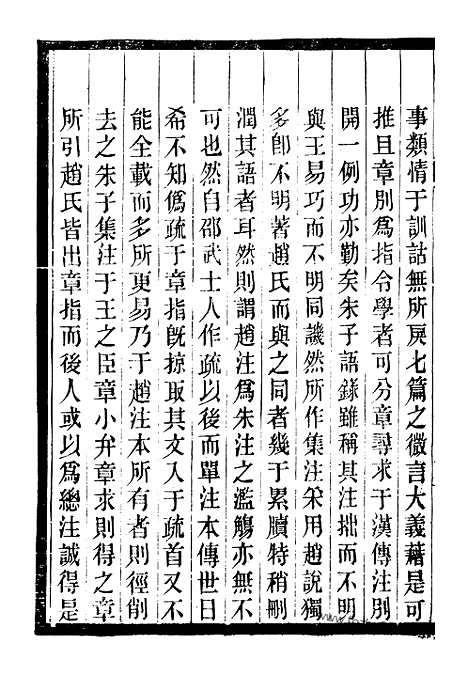 事類情于訓詁無所戾七篇之微言大義藉是可
推且章別爲指令學者可分章尋求于漢傳注別
開一例功亦勤矣朱子語錄雖稱其注拙而不明
與王易巧而不明同譏然所作集注采用趙說獨
多卽不明著趙氏而與之同者幾于累牘特稍刪
潤其語者耳然則謂趙注爲朱注之濫觴亦無不
可也然自邵武士人作疏以後而單注本傳世日
希不知僞疏于章指旣掠取其文入于疏首又不
能全載而多所更易乃于趙注本所有者則徑削
去之朱子集注于王之臣章小弁章求則得之章
所引趙氏皆出章指而後人或以爲總注誠得是